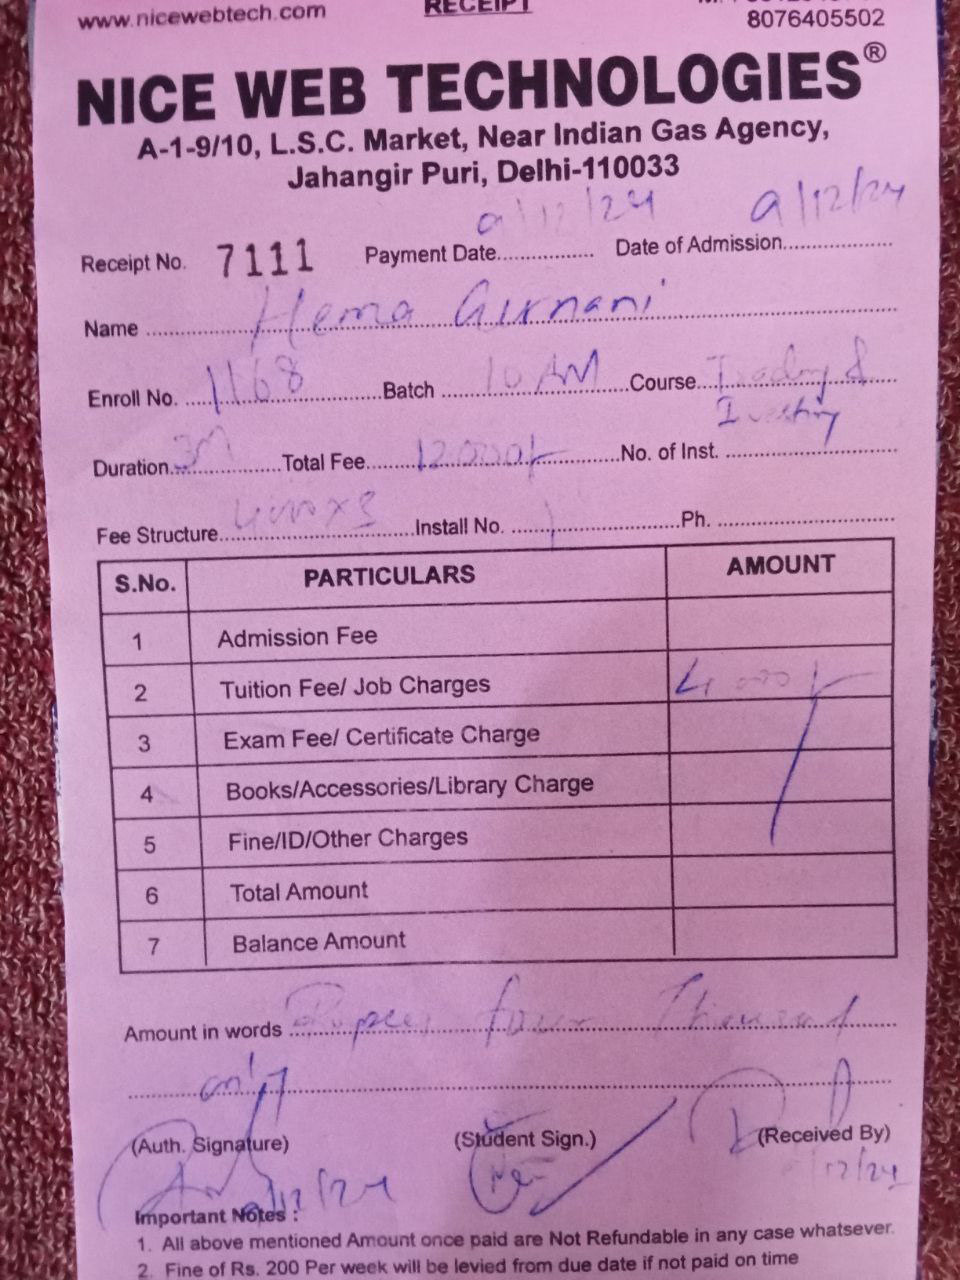 www.nicewebtech.com
RECEIPT
8076405502
NICE WEB TECHNOLOGIES®
A-1-9/10, L.S.C. Market, Near Indian Gas Agency,
Jahangir Puri, Delhi-110033
Receipt No. 7111 Payment Date 9/12/24 Date of Admission 9/12/24
Name Hema Gurnani
Enroll No. 1168 Batch 10 AM Course Trading &
Investing
Duration 3M Total Fee 12000/- No. of Inst.
Fee Structure 4000x3 Install No. 1 Ph.
S.No. PARTICULARS AMOUNT
1 Admission Fee
2 Tuition Fee/ Job Charges 4000/-
3 Exam Fee/ Certificate Charge
4 Books/Accessories/Library Charge
5 Fine/ID/Other Charges
6 Total Amount
7 Balance Amount
Amount in words Rupees four Thousand
only
(Auth. Signature) (Student Sign.) (Received By)
9/12/24 9/12/24
Important Notes :
1. All above mentioned Amount once paid are Not Refundable in any case whatsever.
2. Fine of Rs. 200 Per week will be levied from due date if not paid on time